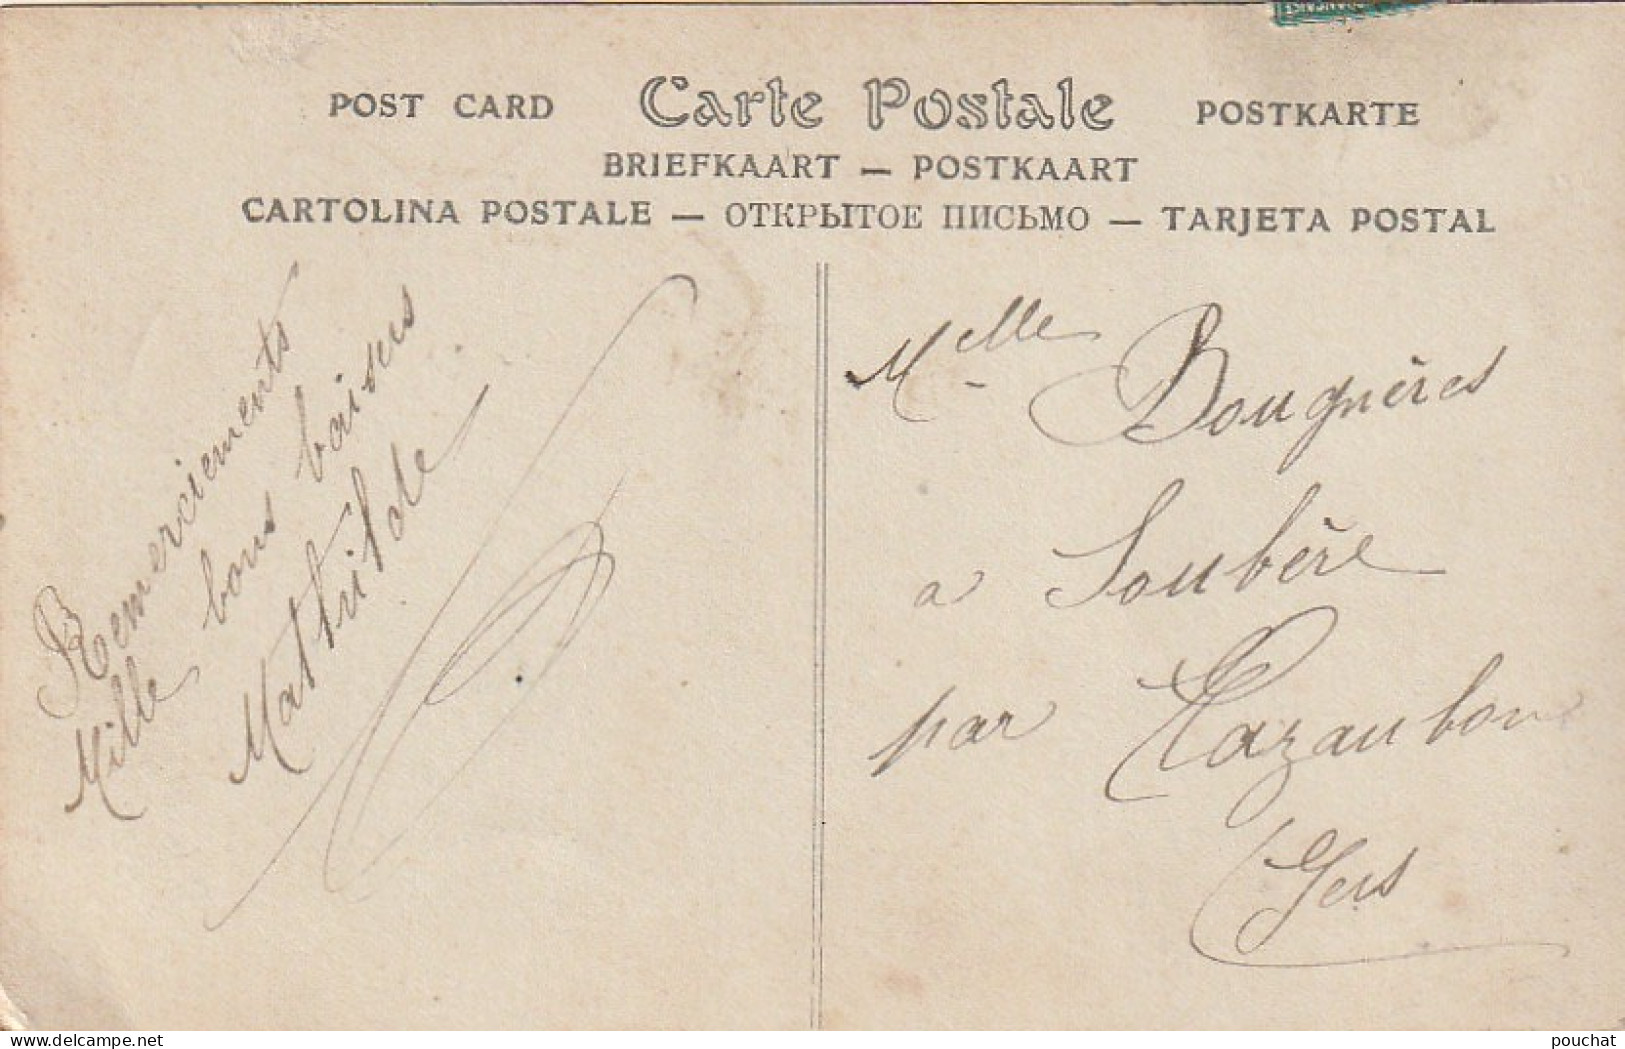 POST CARD Carte Postale POSTKARTE
BRIEFKAART — POSTKAART
CARTOLINA POSTALE — ОТКРЫТОЕ ПИСЬМО — TARJETA POSTAL
Remerciements
Mille bons baisers
Mathilde
Melle Bougnères
a Soubère
par Cazaubon
Gers
www.delcampe.net
pouchat